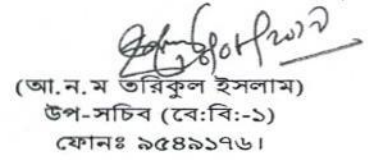 (আ.ন.ম তরিকুল ইসলাম)
উপ-সচিব (বে:বি:-১)
ফোনঃ ৯৫৪৯১৭৬।